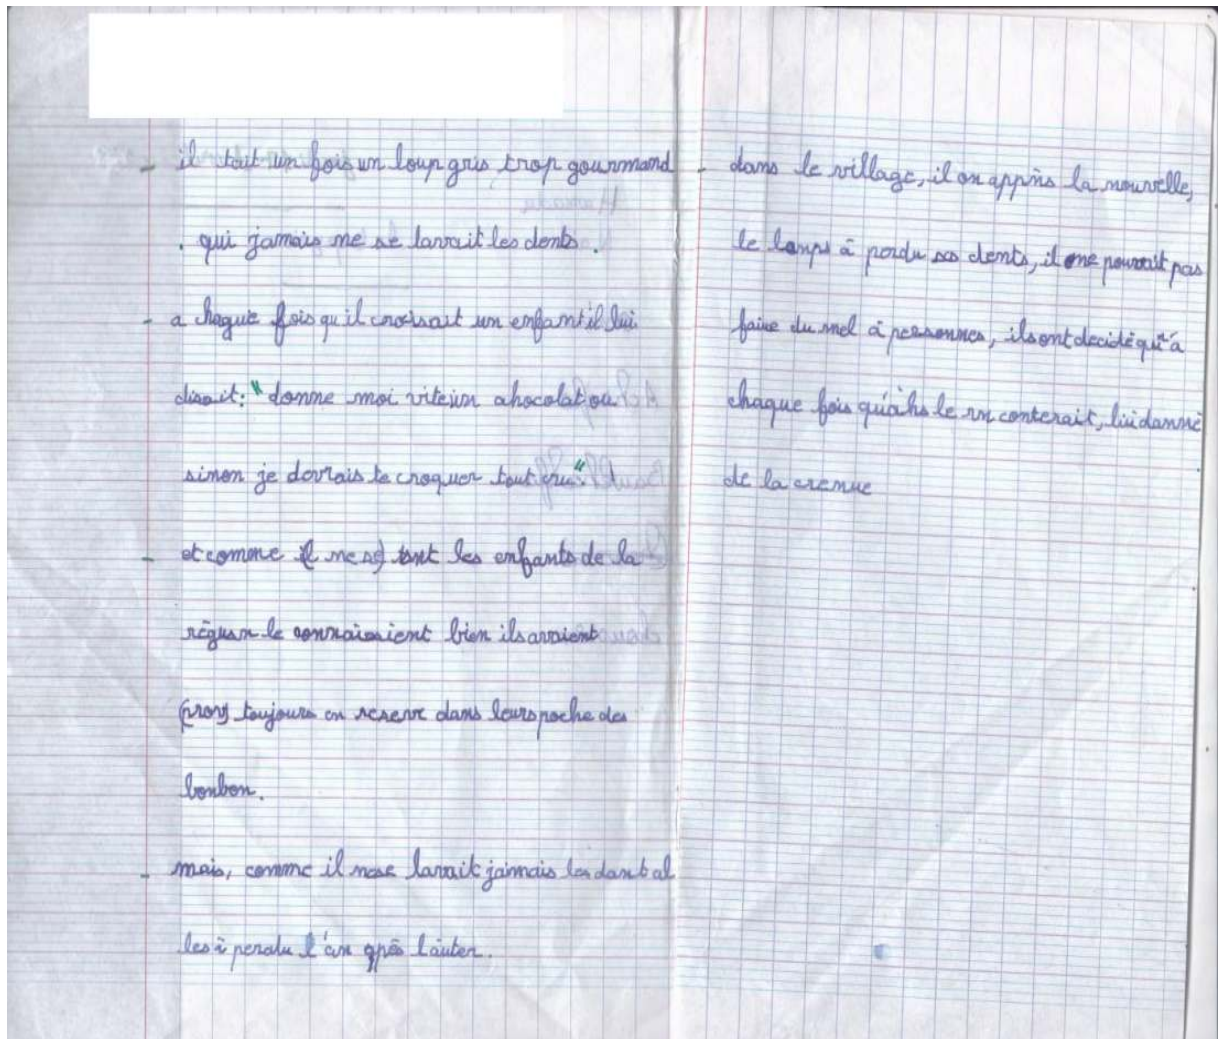 - il tait un fois un loup gris trop gourmand
. qui jamais ne se lavait les dents.
- a chaque fois qu'il croisait un enfant il lui
disait: "donne moi vite un chocolat ou
sinon je devrais te croquer tout cru"
- et comme il ne se) tout les enfants de la
région le connaissient bien ils avaient
toujours en reserve dans leurs poche des
bonbon.
- mais, comme il nese lavait jaimais les dant al
les à perdu l'an après l'auter.
- dans le village, il on appris la nouvelle,
le lamps à perdu ses dents, il ne pourait pas
faire du mel à personnes, ils ont decidé qu'à
chaque fois qu'ahs le rn conterait, lui danné
de la cremue